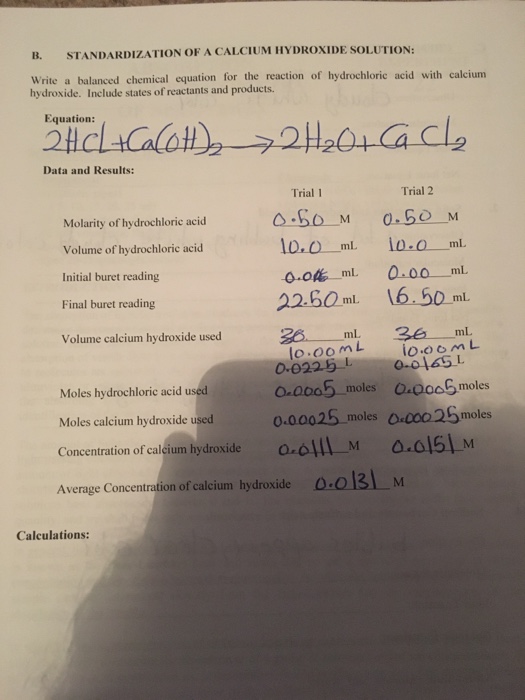 B. STANDARDIZATION OF A CALCIUM HYDROXIDE SOLUTION:
Write a balanced chemical equation for the reaction of hydrochloric acid with calcium
hydroxide. Include states of reactants and products.
Equation:
2HCl + Ca(OH)2 → 2H2O + CaCl2
Data and Results:
Trial 1 Trial 2
Molarity of hydrochloric acid 0.50 M 0.50 M
Volume of hydrochloric acid 10.0 mL 10.0 mL
Initial buret reading mL 0.00 mL
Final buret reading 22.50 mL 16.50 mL
Volume calcium hydroxide used mL mL
10.00mL 10.00mL
0.0225 L 0.0165 L
Moles hydrochloric acid used 0.0005 moles 0.0005 moles
Moles calcium hydroxide used 0.00025 moles 0.00025 moles
Concentration of calcium hydroxide 0.0111 M 0.0151 M
Average Concentration of calcium hydroxide 0.0131 M
Calculations: